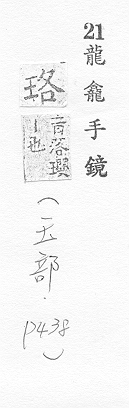 21龍龕手鏡
珞
音落瓔
丨也
(玉部.p438)